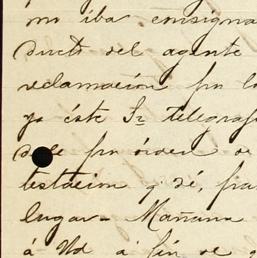 no iba consigna
ducto del agente
reclamación por lo
ya éste Sr telegraf
por órden de
testacion q dé, pa
lugar - Mañana
á Ud á fin de q